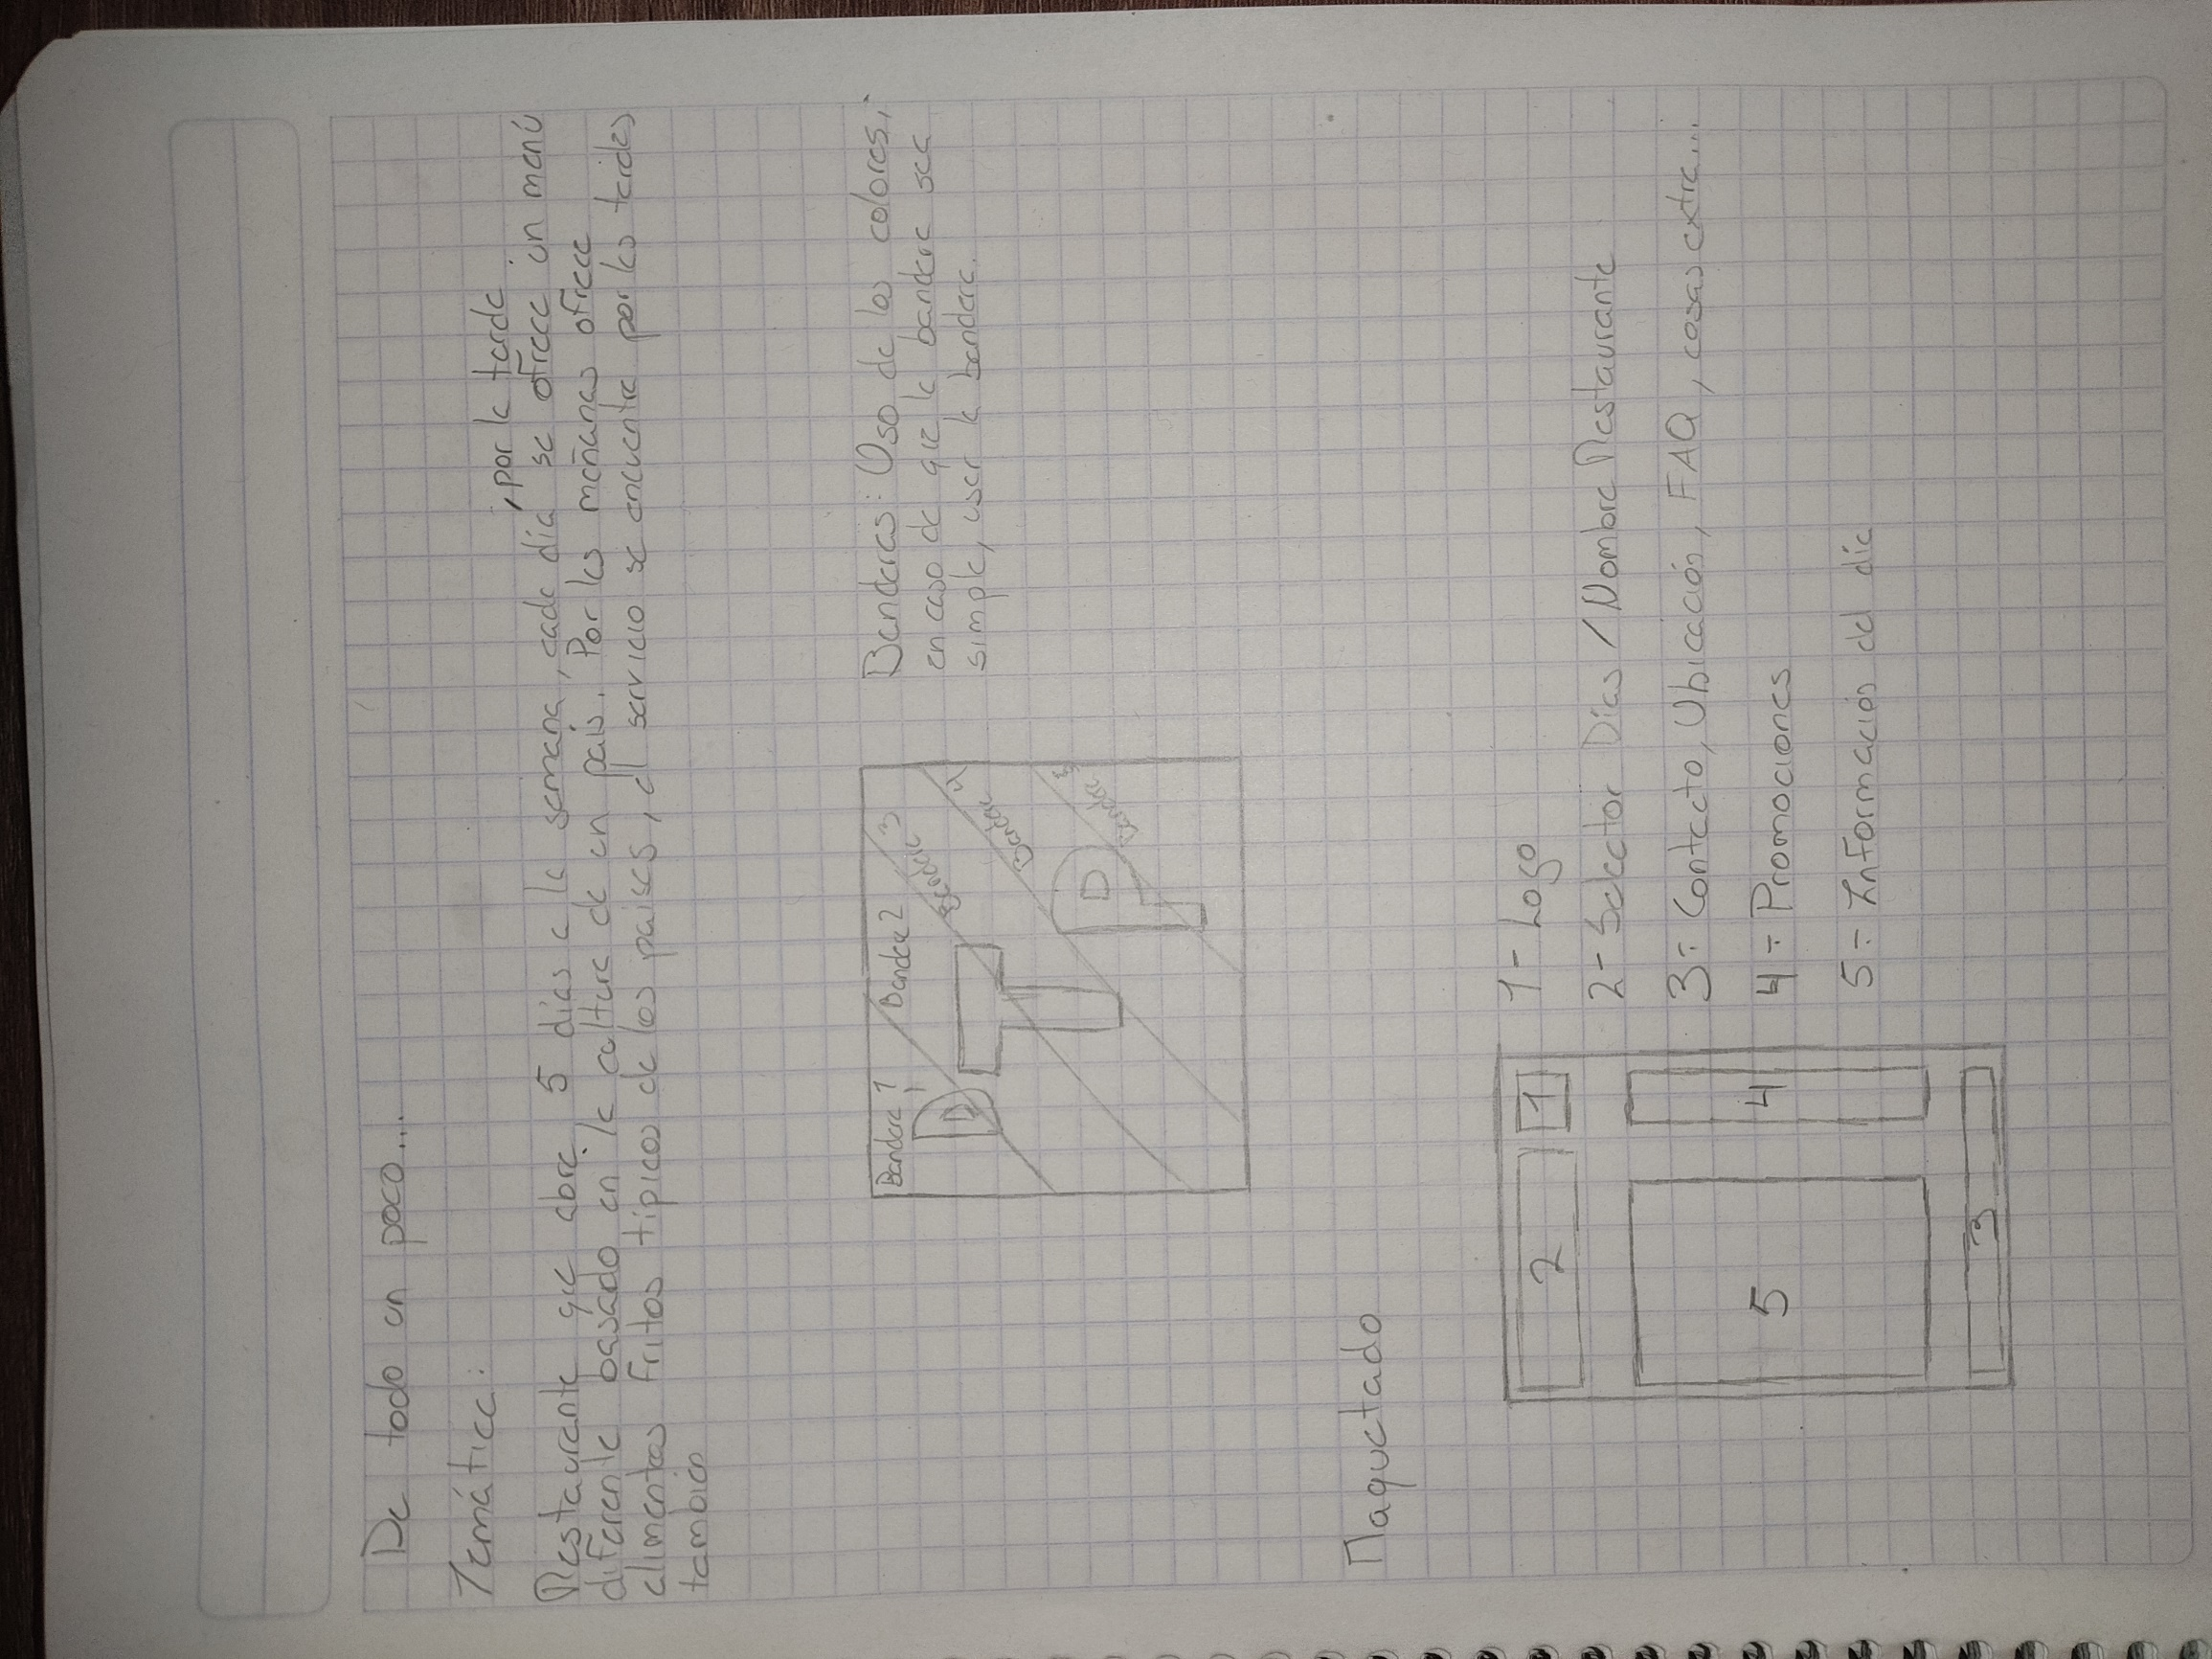 De todo un poco...
Temática:
, por la tarde
Restaurante que abre 5 días a la semana, cada día se ofrece un menú
diferente basado en la cultura de un país. Por las mañanas ofrece
alimentos fritos tipicos de los paises, el servicio se encuentra por las tardes
tambien
Bandera 1
Bandera 2
Bandera 3
Bandera 4
Bandera 5
D
T
D
P
Banderas: Uso de los colores,
en caso de que la bandera sea
simple, usar la bandera.
Maquetado
2
1
5
4
3
1- Logo
2- Selector Días / Nombre Restaurante
3- Contacto, Ubicación, FAQ, cosas extra...
4- Promociones
5- Información del día